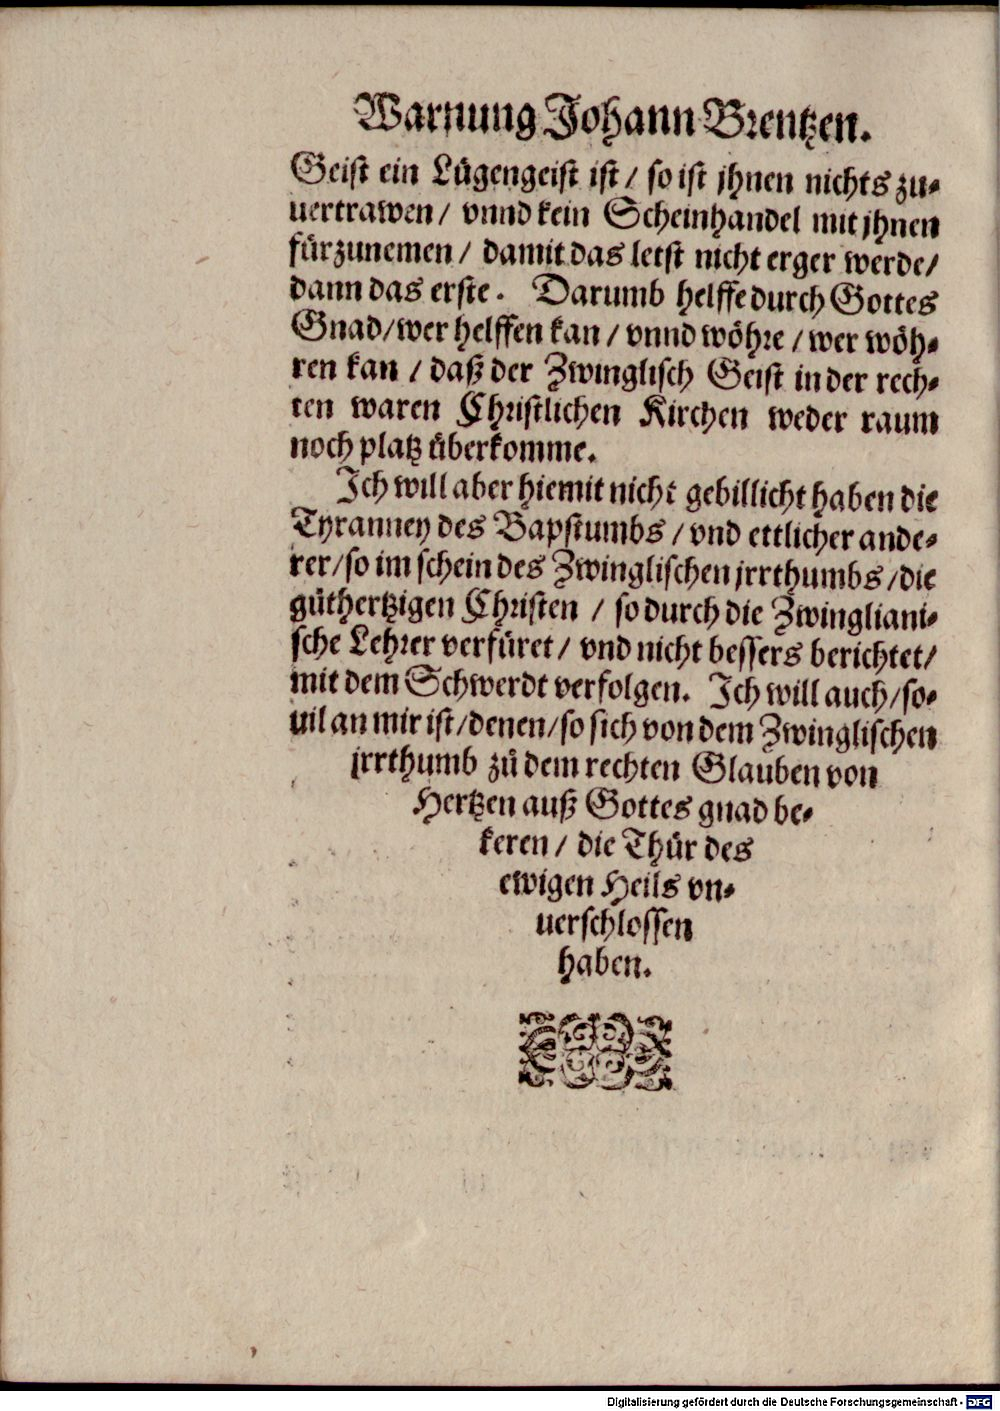 Warnung Johann Brentzen.
Geist ein Lügengeist ist / so ist jhnen nichts zu-
uertrawen / vnnd kein Scheinhandel mit jhnen
fürzunemen / damit das letst nicht erger werde /
dann das erste. Darumb helffe durch Gottes
Gnad / wer helffen kan / vnnd wöhre / wer wöh-
ren kan / daß der Zwinglisch Geist in der rech-
ten waren Christlichen Kirchen weder raum
noch platz überkomme.
Ich will aber hiemit nicht gebillicht haben die
Tyranney des Bapstumbs / vnd ettlicher ande-
rer / so im schein des Zwinglischen jrrthumbs / die
gůthertzigen Christen / so durch die Zwingliani-
sche Lehrer verfüret / vnd nicht bessers berichtet /
mit dem Schwerdt verfolgen. Ich will auch / so-
uil an mir ist / denen / so sich von dem Zwinglischen
jrrthumb zů dem rechten Glauben von
Hertzen auß Gottes gnad be-
keren / die Thür des
ewigen Heils vn-
uerschlossen
haben.
Digitalisierung gefördert durch die Deutsche Forschungsgemeinschaft - DFG